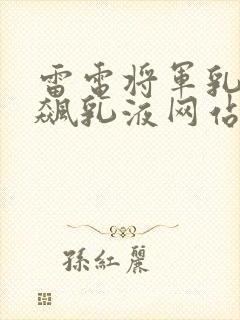 雷電将軍乳
飆乳液网佔
孫紅麗